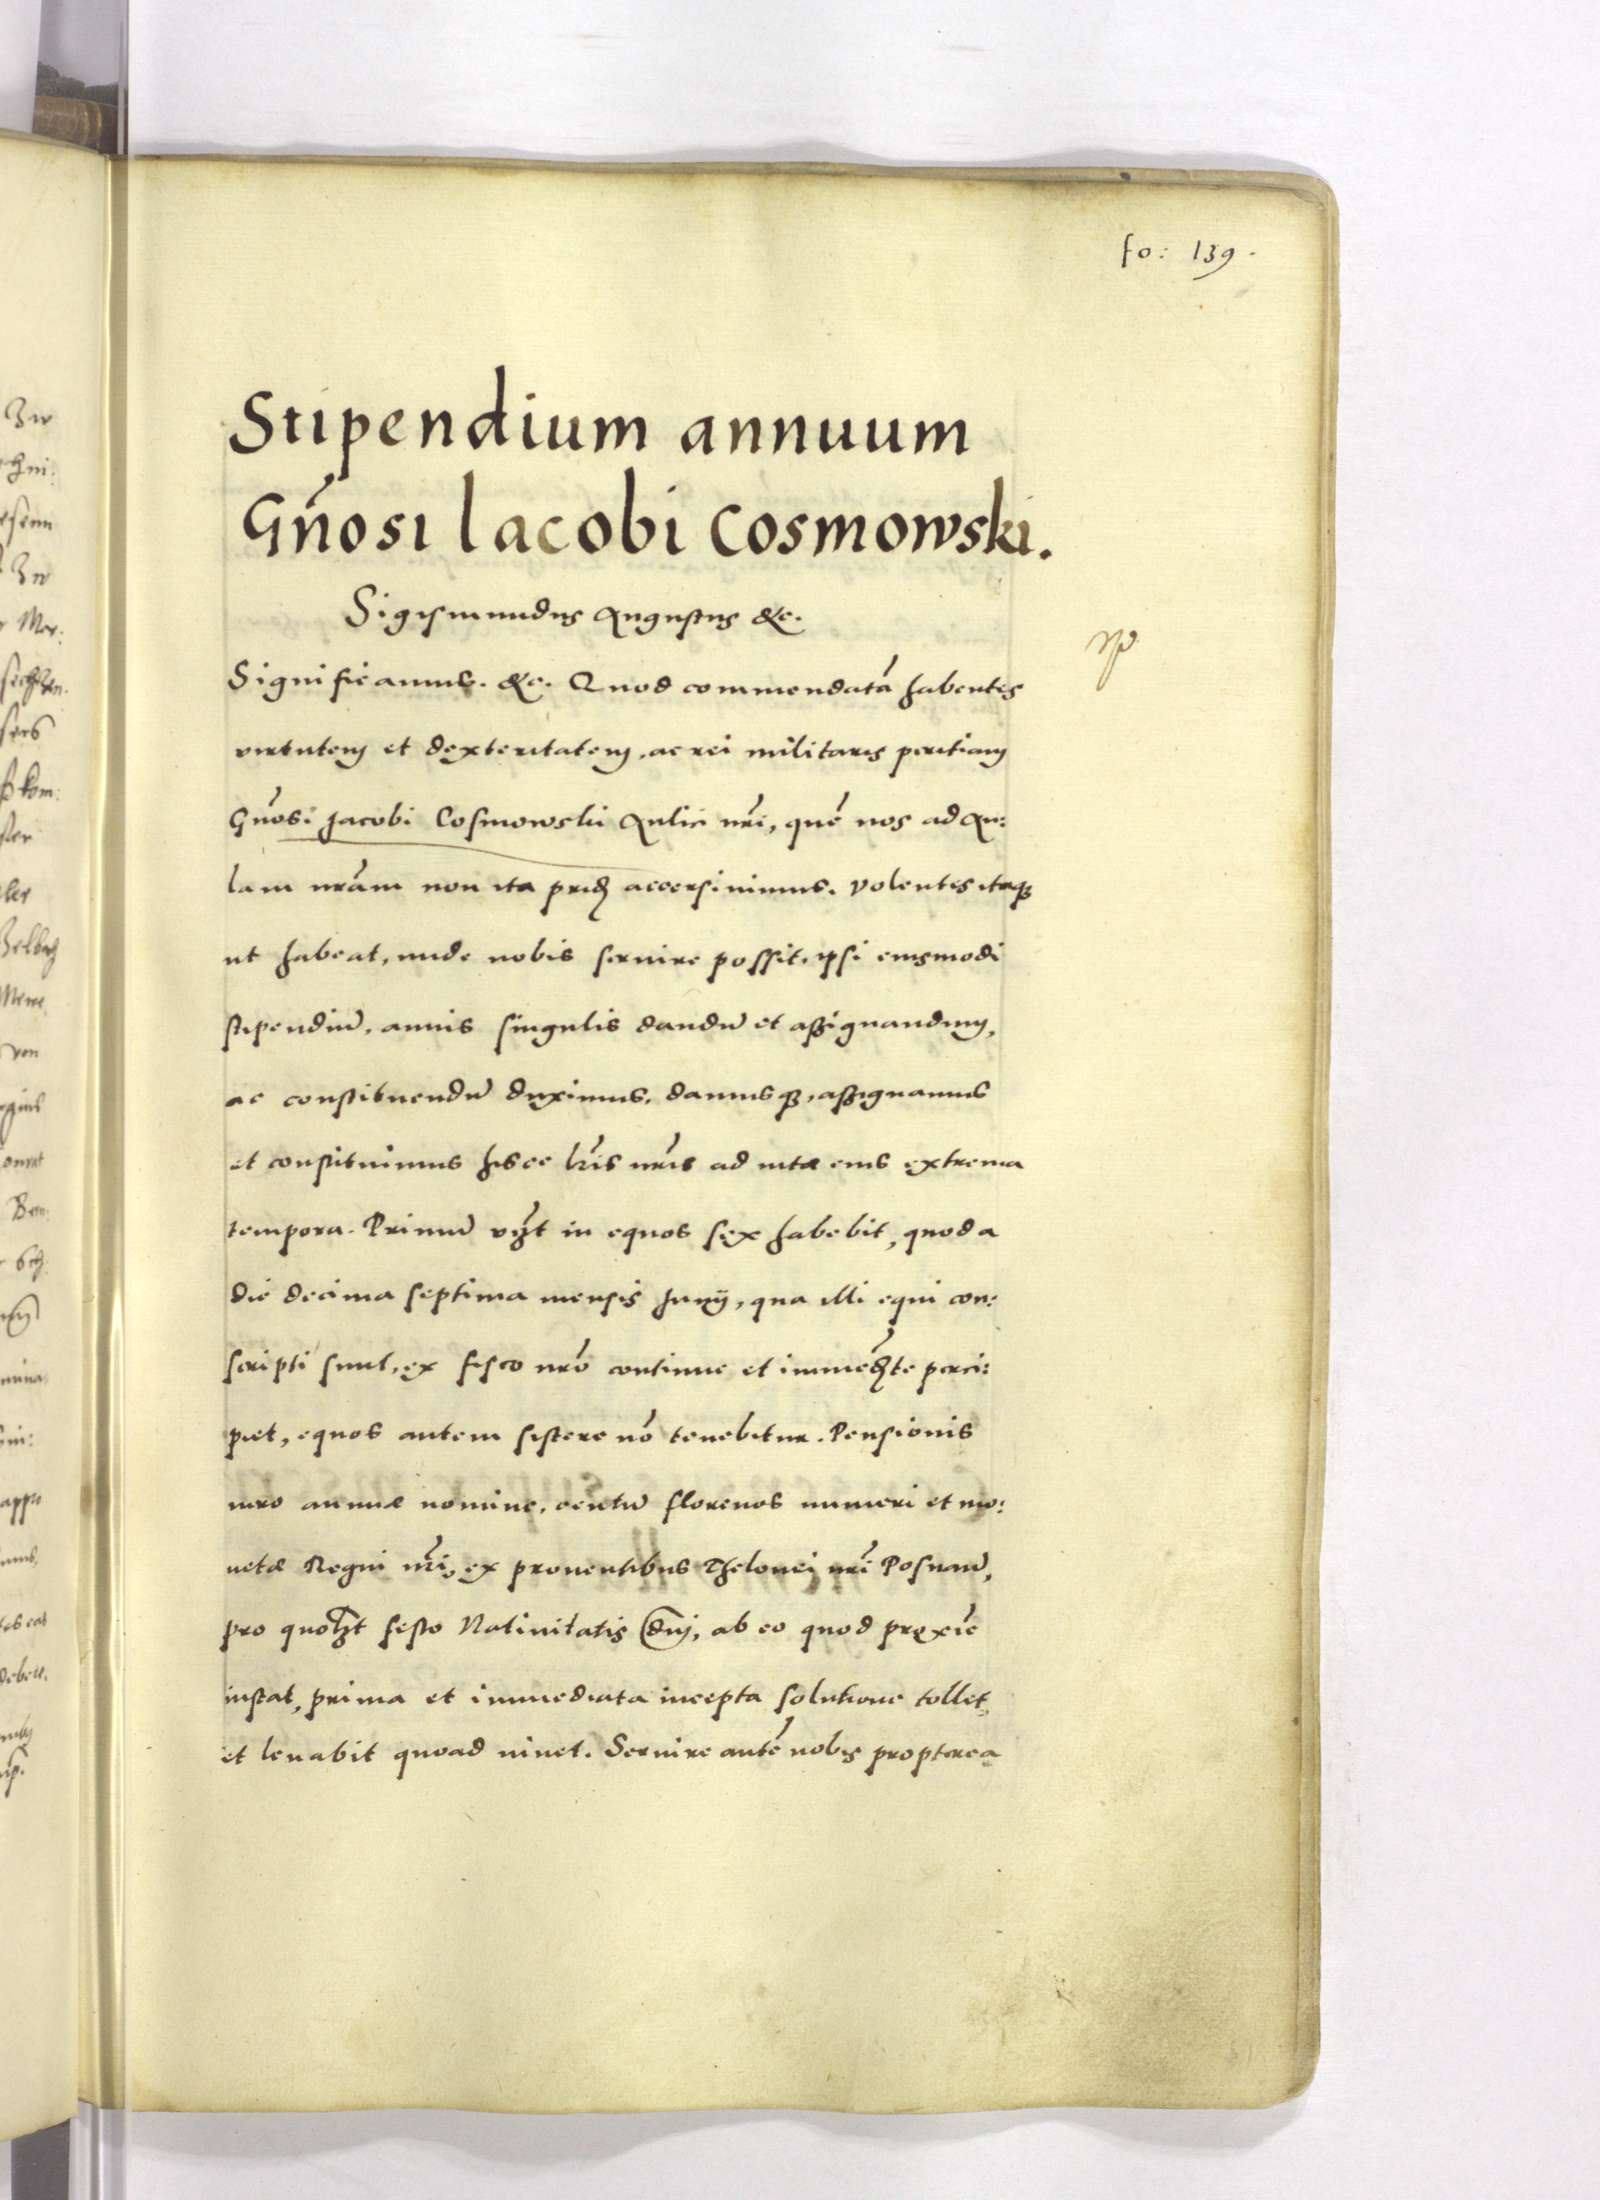 fo: 139.
Stipendium annuum
Gn̄osi Iacobi Cosmowski.
Sigismundus Augustus &c.
Significamus. &c. Quod commendatā habentes
virtutem et dexteritatem, ac rei militaris peritiam
Gn̄osi Jacobi Cosmowski Aulici nr̄i, quē nos ad Au:
lam nr̄am non ita prid̄ accersivimus. Volentes itaq̨
ut habeat, unde nobis servire possit, ipsi eiusmodi
stipendiū, annis singulis dandū et assignandum,
ac constituendū duximus, damusq̨, assignamus
et constituimus hisce lr̄is nr̄is ad vitæ eius extrema
tempora. Primū vz̄t in equos sex habebit, quod a
die decima septima mensis Junij, qua illi equi con:
scripti sunt, ex fisco nr̄o continue et immed̄te perci:
piet, equos autem sistere nō tenebitur. Pensionis
vero annuæ nomine, centū florenos numeri et mo:
netæ Regni nr̄i, ex proventibus Thelonei nr̄i Posnan̄,
pro quolz̄t festo Nativitatis Dn̄j, ab eo quod proxīe
instat, prima et immediata incepta solutione tollet,
et levabit quoad vivet. Servire autē nobis propterea